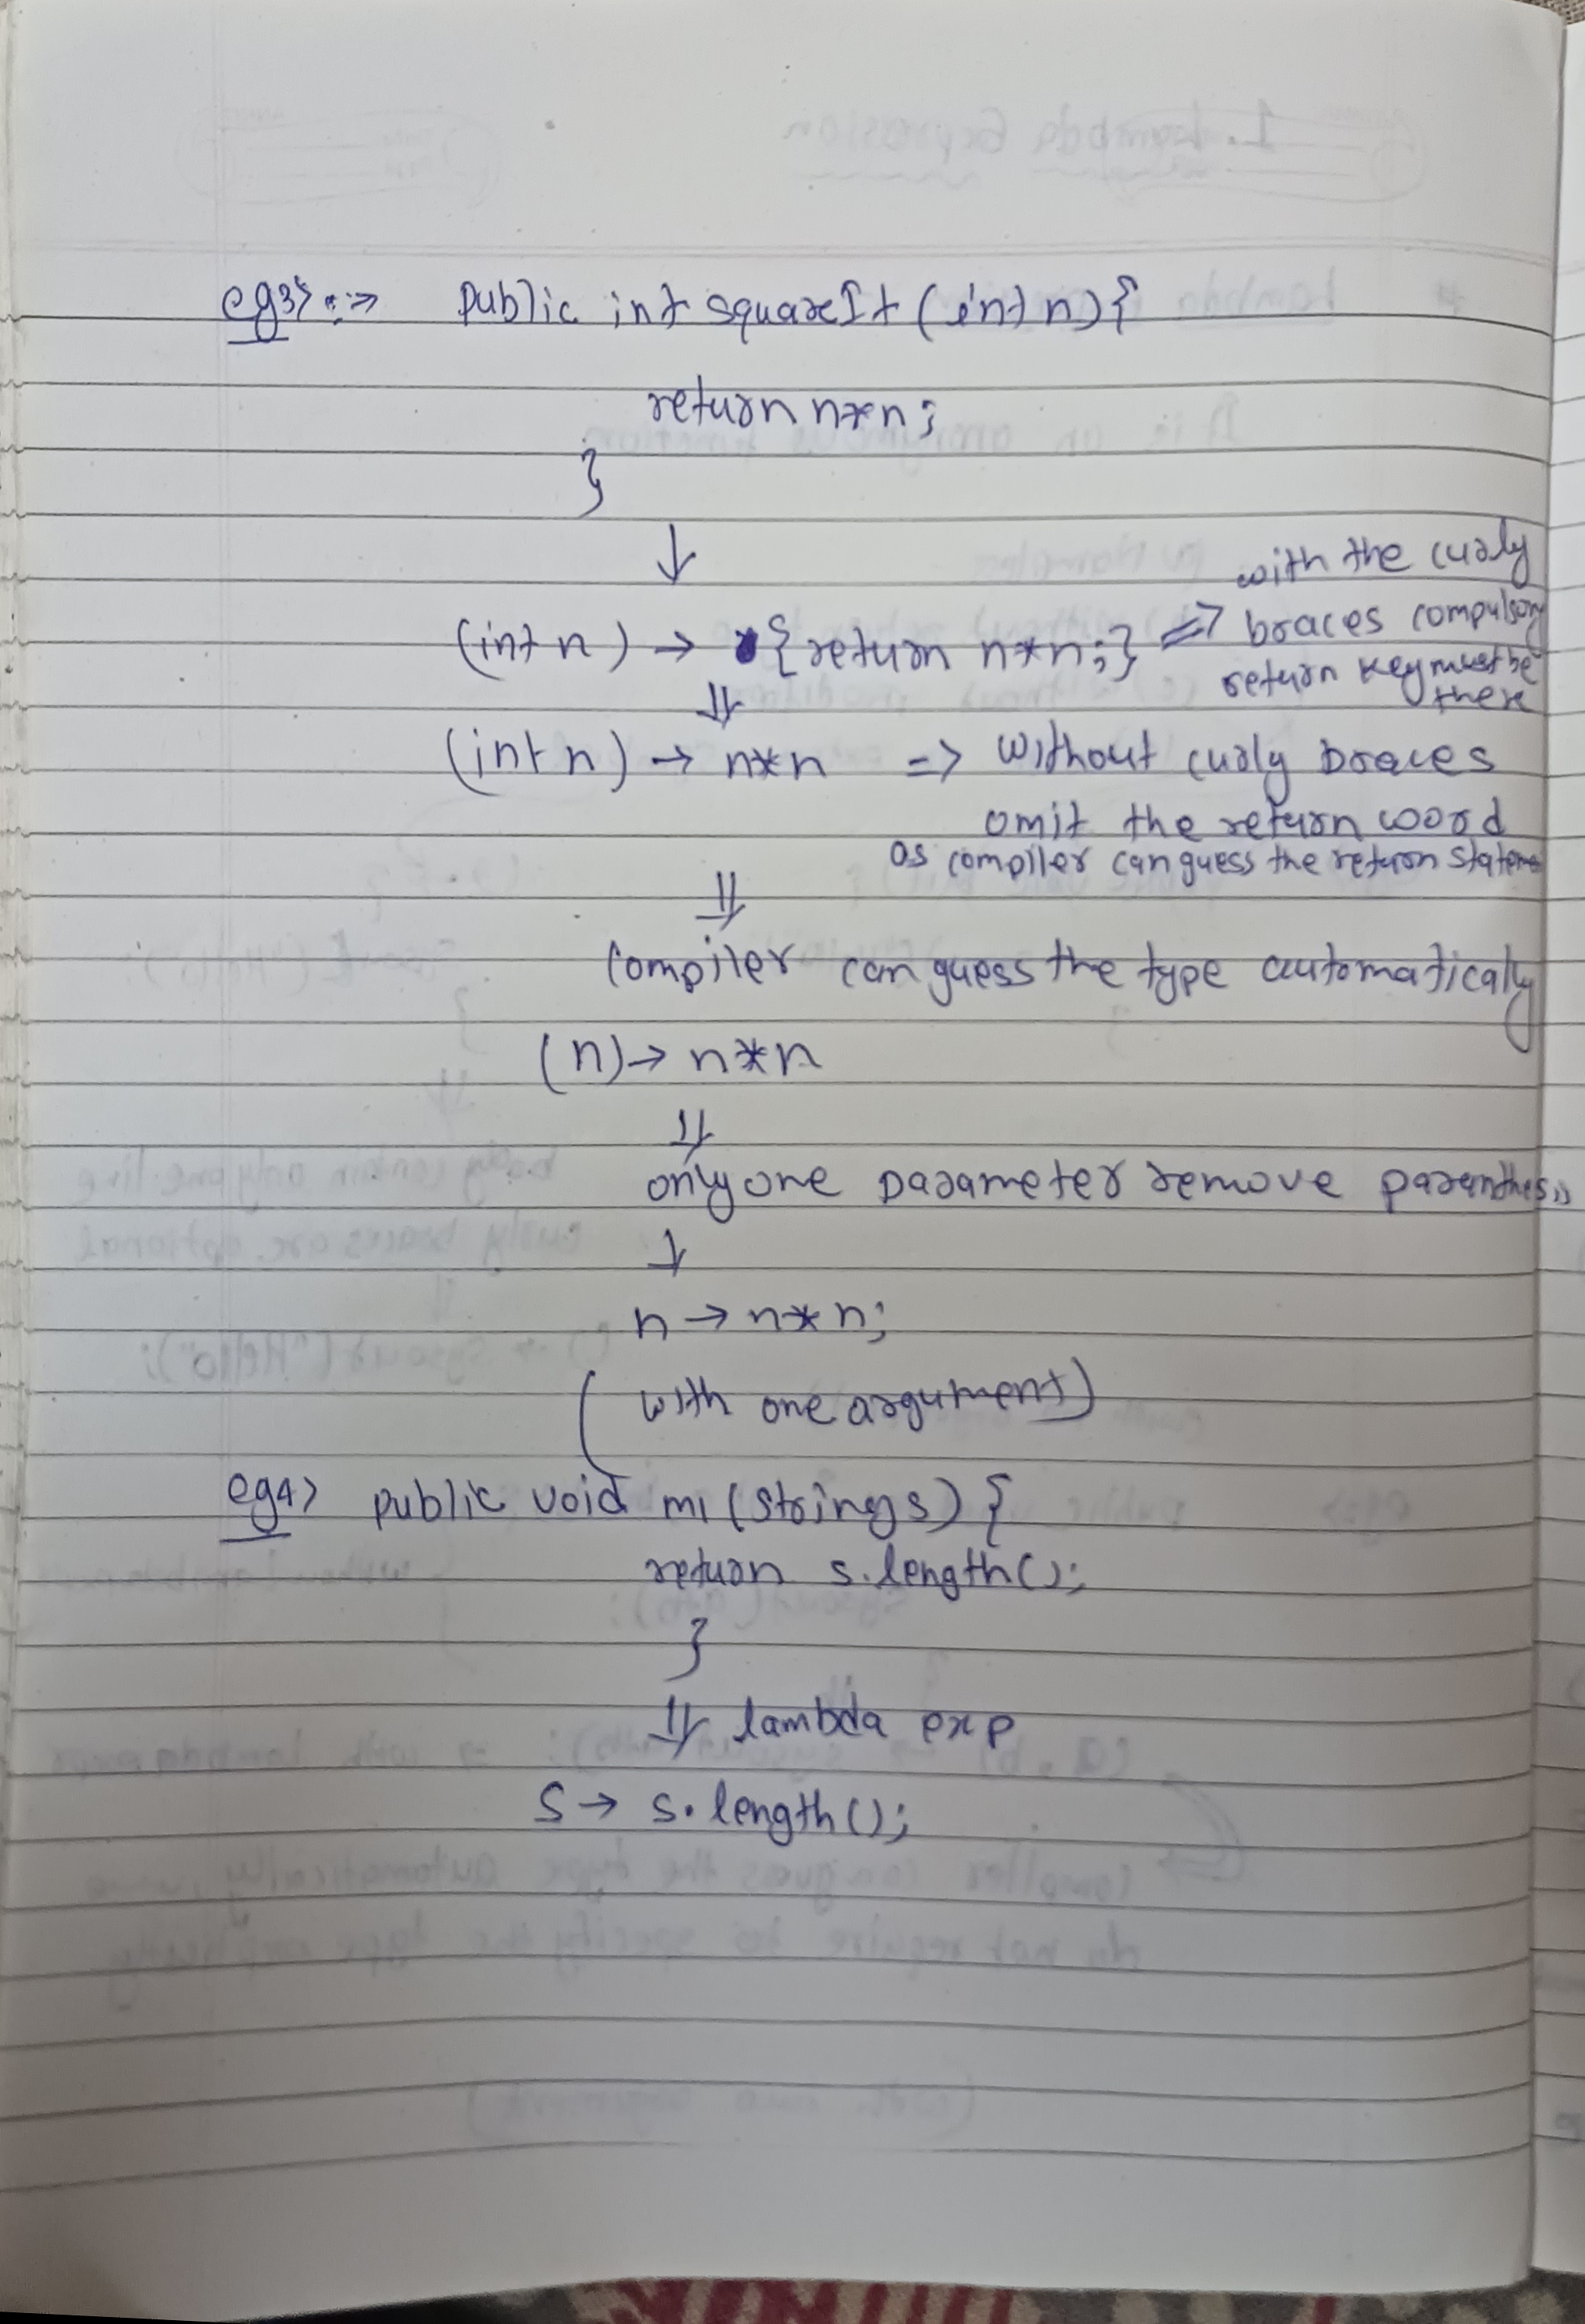 eg3> :->  public int squareIt (int n) {
return n*n;
}
↓
(int n) → {return n*n;} => with the curly
braces compulsory
return key must be
there
⇓
(int n) → n*n => without curly braces
omit the return word
as compiler can guess the return stateme
⇓
compiler can guess the type automaticaly
(n) → n*n
⇓
only one parameter remove paranthesis
↓
n → n*n;
(with one argument)
eg4> public void m1 (string s) {
return s.length();
}
⇓ lambda exp
S → s.length();